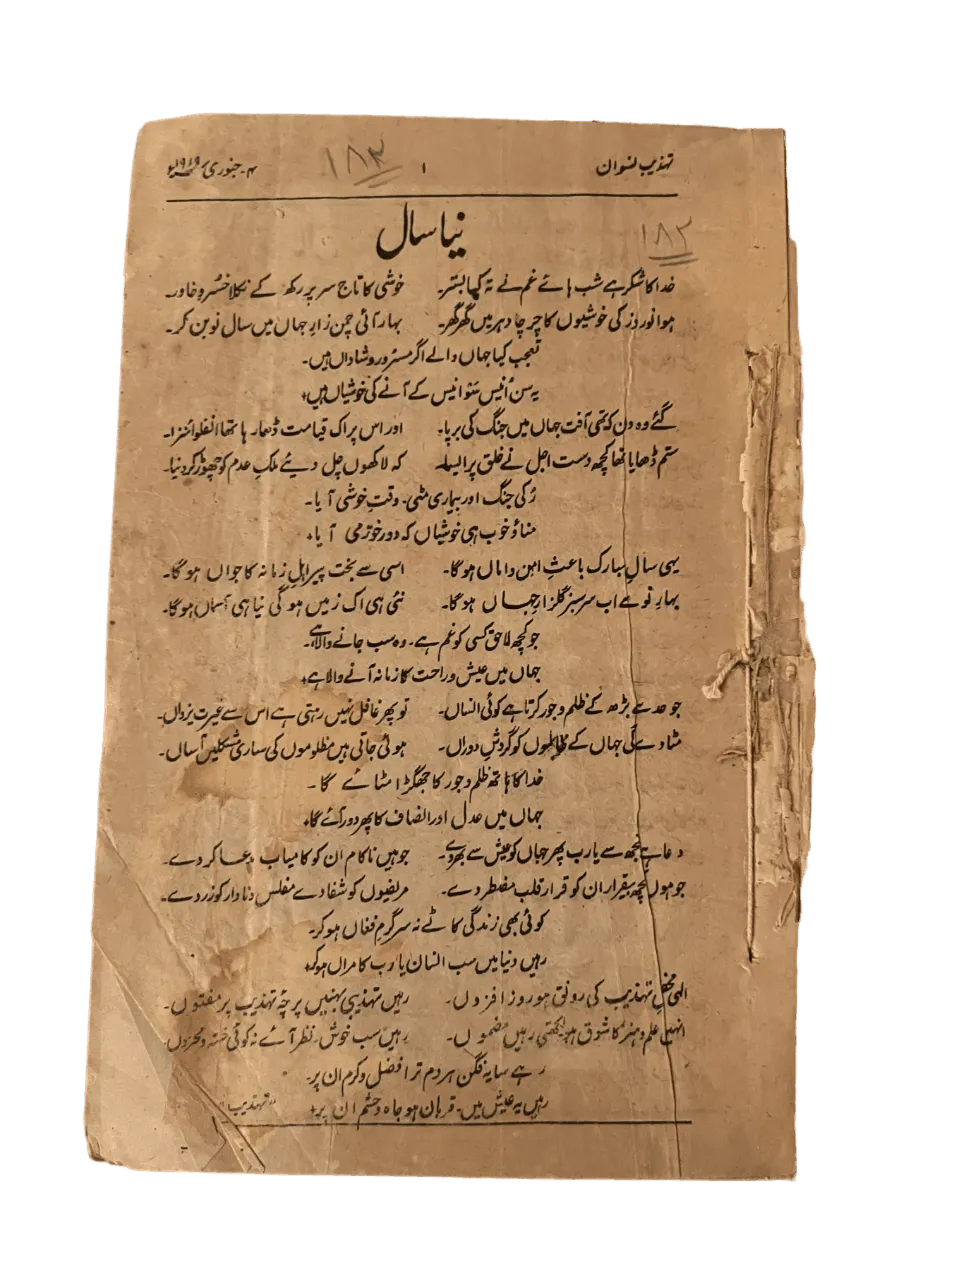 تہذیب نسواں ۱ ۴۔ جنوری ۱۹۱۹ء
۱۸۳
۱۸۲
نیا سال
خدا کا شکر ہے شب ہائے غم نے تہ کیا بستر۔ خوشی کا تاج سر پر رکھ کے نکلا خسرو خاور۔
ہوا نوروز کی خوشیوں کا چرچا دہر میں گھر گھر۔ بہار آئی چمن زار جہاں میں سال نو بن کر۔
تعجب کیا جہاں والے اگر مسرور و شاداں ہیں۔
یہ سن اُنیس سَو اُنیس کے آنے کی خوشیاں ہیں+
گئے وہ دن کہ تھی آفت جہاں میں جنگ کی برپا۔ اور اس پر اک قیامت ڈھا رہا تھا انفلوائنزا۔
ستم ڈھایا تھا کچھ دست اجل نے خلق پر ایسا۔ کہ لاکھوں چل دیئے ملکِ عدم کو چھوڑ کر دنیا۔
رُکی جنگ اور بیماری مٹی۔ وقتِ خوشی آیا۔
مناؤ خوب ہی خوشیاں کہ دورِ خرّمی آیا+
یہی سالِ مبارک باعثِ امن و اماں ہوگا۔ اسی سے بخت پیر اہلِ زمانہ کا جواں ہوگا۔
بہارِ نو سے اب سرسبز گلزارِ جہاں ہوگا۔ نئی ہی اک زمیں ہوگی نیا ہی آسماں ہوگا۔
جو کچھ لاحق کسی کو غم ہے۔ وہ سب جانے والا ہے۔
جہاں میں عیش و راحت کا زمانہ آنے والا ہے+
جو حد سے بڑھ کے ظلم و جور کرتا ہے کوئی انساں۔ تو پھر غافل نہیں رہتی ہے اس سے غیرتِ یزداں۔
مٹا دے گی جہاں کے ظالموں کو گردشِ دوراں۔ ہوئی جاتی ہیں مظلوموں کی ساری مشکلیں آساں۔
خدا کا ہاتھ ظلم و جور کا جھگڑا مٹائے گا۔
جہاں میں عدل اور انصاف کا پھر دور آئے گا+
دعا ہے تجھ سے یارب پھر جہاں کو عیش سے بھر دے۔ جو ہیں ناکام ان کو کامیاب مدعا کر دے۔
جو ہوں کچھ بیقرار ان کو قرار قلب مضطر دے۔ مریضوں کو شفا دے مفلس و نادار کو زر دے۔
کوئی بھی زندگی کاٹے نہ سرگرم فغاں ہو کر۔
رہیں دنیا میں سب انسان یارب کامراں ہو کر+
الٰہی محفلِ تہذیب کی رونق ہو روز افزوں۔ رہیں تہذیبی بہنیں پرچۂ تہذیب پر مفتوں۔
انہیں علم و ہنر کا شوق ہو لکھتی رہیں مضموں۔ رہیں سب خوش۔ نظر آئے نہ کوئی خستہ و محزوں۔
رہے سایہ فگن ہر دم ترا فضل و کرم ان پر۔
رہیں یہ عیش میں۔ قربان ہو جاہ و حشم ان پر+ "تہذیب"